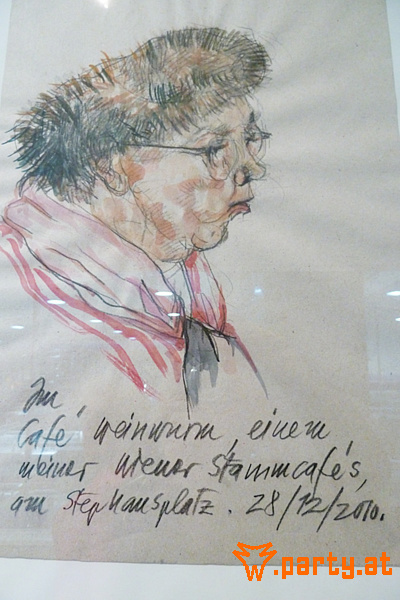 Im
Café Weinwurm, einem
meiner Wiener Stammcafés,
am Stephansplatz. 28/12/2010.
.party.at